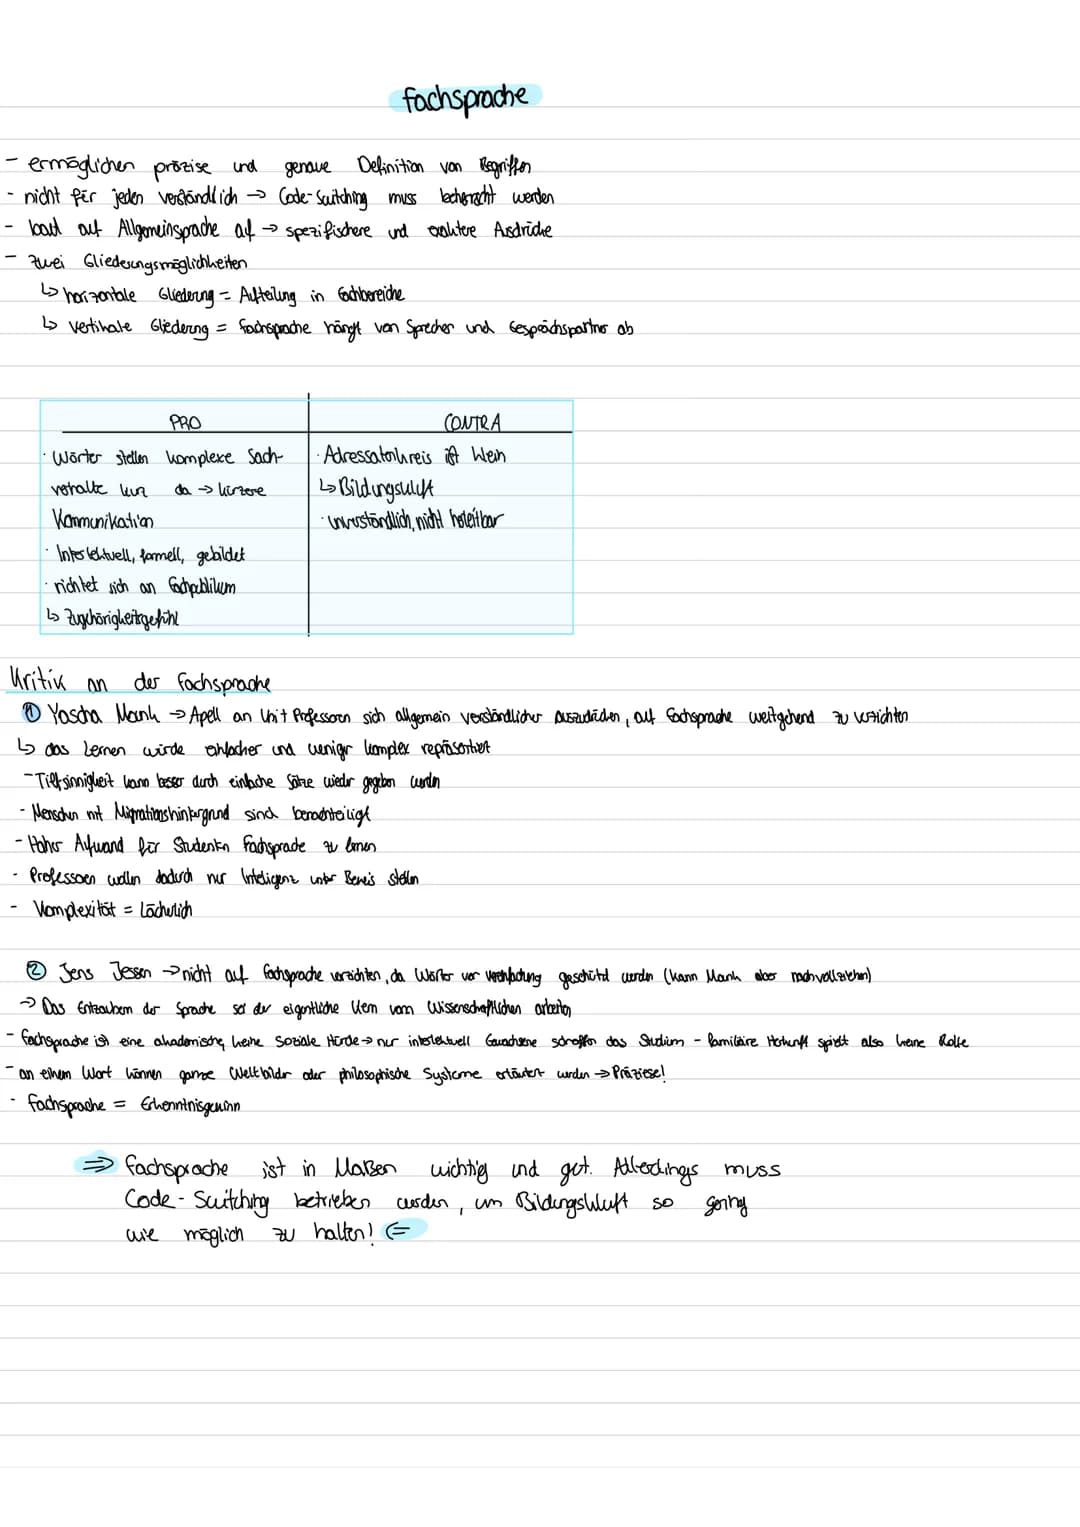 Fachsprache
- ermöglichen präzise und genaue Definition von Begriffen
- nicht für jeden verständlich → Code-Switching muss beherrscht werden
- baut auf Allgemeinsprache auf → spezifischere und exaktere Ausdrücke
- zwei Gliederungsmöglichkeiten
↳ horizontale Gliederung = Aufteilung in Fachbereiche
↳ vertikale Gliederung = Fachsprache hängt von Sprecher und Gesprächspartner ab
PRO
· Wörter stellen komplexe Sach-
verhalte kurz da → kürzere
Kommunikation
· Intellektuell, formell, gebildet
· richtet sich an Fachpublikum
↳ Zugehörigkeitsgefühl
CONTRA
· Adressatenkreis ist klein
↳ Bildungskluft
· unverständlich, nicht herleitbar
Kritik an der Fachsprache
① Yascha Mounk → Apell an Unit Professoren sich allgemein verständlicher auszudrücken, auf Fachsprache weitgehend zu verzichten
↳ das Lernen würde einfacher und weniger komplex repräsentiert
- Tiefsinnigkeit kann besser durch einfache Sätze wieder gegeben werden
- Menschen mit Migrationshintergrund sind benachteiligt
- Hoher Aufwand für Studenten Fachsprache zu lernen
- Professoren wollen dadurch nur Intelligenz unter Beweis stellen
- Komplexität = Lächerlich
② Jens Jessen → nicht auf Fachsprache verzichten, da Wörter vor geschützt werden (kann Mounk aber nachvollziehen)
→ Das Entzaubern der Sprache sei der eigentliche Kern vom Wissenschaftlichen arbeiten
- Fachsprache ist eine akademische, keine Soziale Hürde → nur intellektuell Gewachsene schaffen das Studium - familiäre Herkunft spielt also keine Rolle
- an einem Wort können ganze Weltbilder oder philosophische Systeme erläutert werden → Präziese!
- Fachsprache = Erkenntnisgewinn
⇒ Fachsprache ist in Maßen wichtig und gut. Allerdings muss
Code-Switching betrieben werden, um Bildungskluft so gering
wie möglich zu halten! ⇐